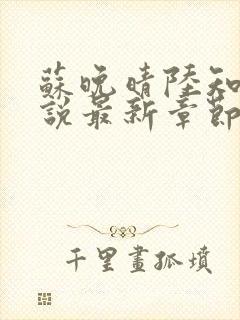 蘇晚晴陸知
說最新章節
千里畫孤墳